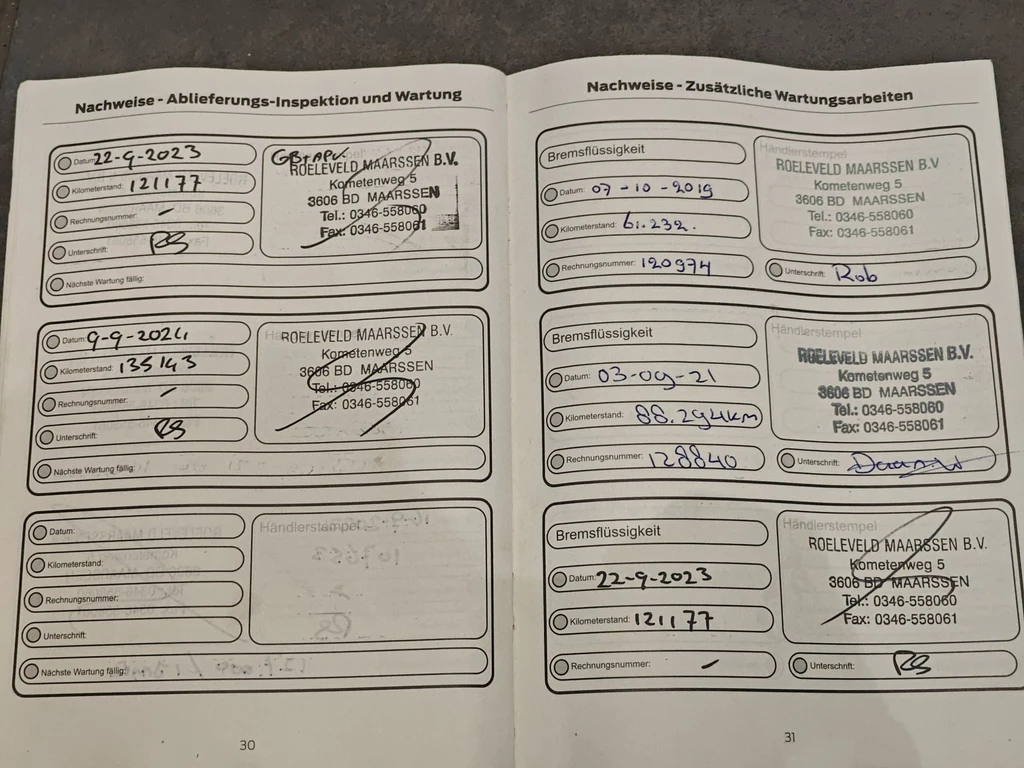 Nachweise - Ablieferungs-Inspektion und Wartung
Datum: 22-9-2023
Kilometerstand: 121177
Rechnungsnummer: -
Unterschrift: RS
Nächste Wartung fällig:
GB+APK
ROELEVELD MAARSSEN B.V.
Kometenweg 5
3606 BD MAARSSEN
Tel.: 0346-558060
Fax: 0346-558061
Datum: 9-9-2024
Kilometerstand: 135143
Rechnungsnummer: -
Unterschrift: RS
Nächste Wartung fällig:
ROELEVELD MAARSSEN B.V.
Kometenweg 5
3606 BD MAARSSEN
Tel.: 0346-558060
Fax: 0346-558061
Datum:
Kilometerstand:
Rechnungsnummer:
Unterschrift:
Nächste Wartung fällig:
Händlerstempel
30
Nachweise - Zusätzliche Wartungsarbeiten
Bremsflüssigkeit
Datum: 07-10-2019
Kilometerstand: 61.232.
Rechnungsnummer: 120974
Händlerstempel
ROELEVELD MAARSSEN B.V
Kometenweg 5
3606 BD MAARSSEN
Tel.: 0346-558060
Fax: 0346-558061
Unterschrift: Rob
Bremsflüssigkeit
Datum: 03-09-21
Kilometerstand: 88.294km
Rechnungsnummer: 128840
Händlerstempel
ROELEVELD MAARSSEN B.V.
Kometenweg 5
3606 BD MAARSSEN
Tel.: 0346-558060
Fax: 0346-558061
Unterschrift:
Bremsflüssigkeit
Datum: 22-9-2023
Kilometerstand: 121177
Rechnungsnummer: -
Händlerstempel
ROELEVELD MAARSSEN B.V.
Kometenweg 5
3606 BD MAARSSEN
Tel.: 0346-558060
Fax: 0346-558061
Unterschrift: RS
31